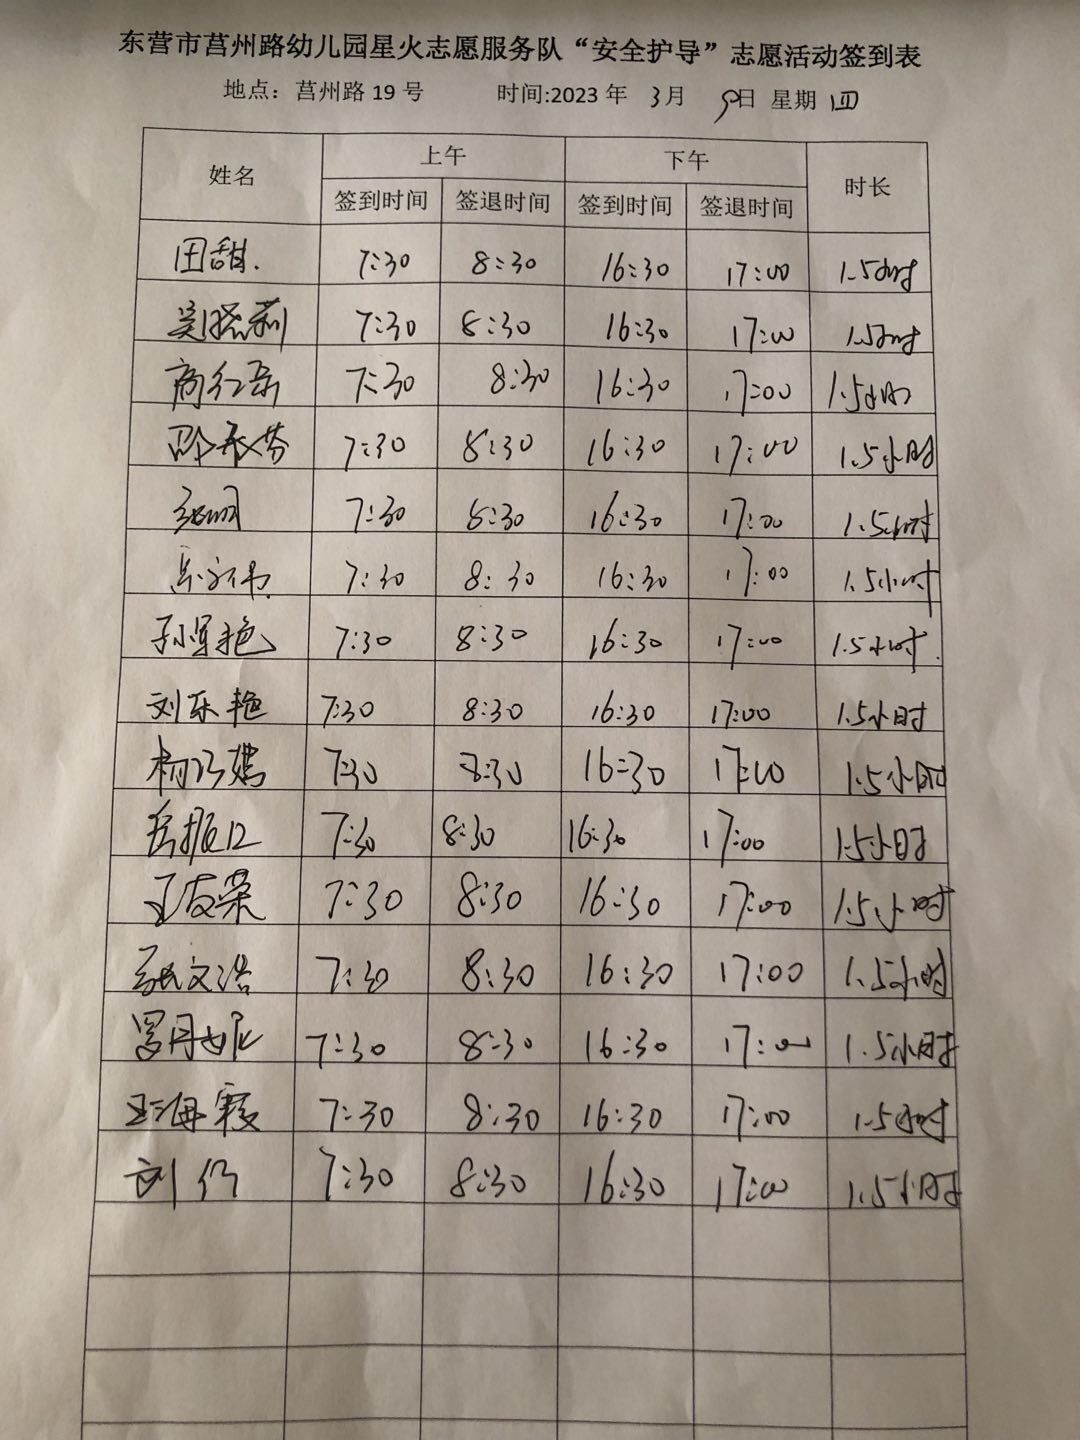 东营市莒州路幼儿园星火志愿服务队“安全护导”志愿活动签到表
地点：莒州路19号 时间:2023年 3月 9日 星期 四
姓名 上午 下午 时长
签到时间 签退时间 签到时间 签退时间
田甜. 7:30 8:30 16:30 17:00 1.5小时
吴晓莉 7:30 8:30 16:30 17:00 1.5小时
商红 7:30 8:30 16:30 17:00 1.5小时
邵 芬 7:30 8:30 16:30 17:00 1.5小时
7:30 8:30 16:30 17:00 1.5小时
7:30 8:30 16:30 17:00 1.5小时
孙军艳 7:30 8:30 16:30 17:00 1.5小时.
刘东艳 7:30 8:30 16:30 17:00 1.5小时
杨 7:30 8:30 16:30 17:00 1.5小时
岳振 7:30 8:30 16:30 17:00 1.5小时
王友荣 7:30 8:30 16:30 17:00 1.5小时
张文浩 7:30 8:30 16:30 17:00 1.5小时
罗丹妮 7:30 8:30 16:30 17:00 1.5小时
王海霞 7:30 8:30 16:30 17:00 1.5小时
刘 7:30 8:30 16:30 17:00 1.5小时